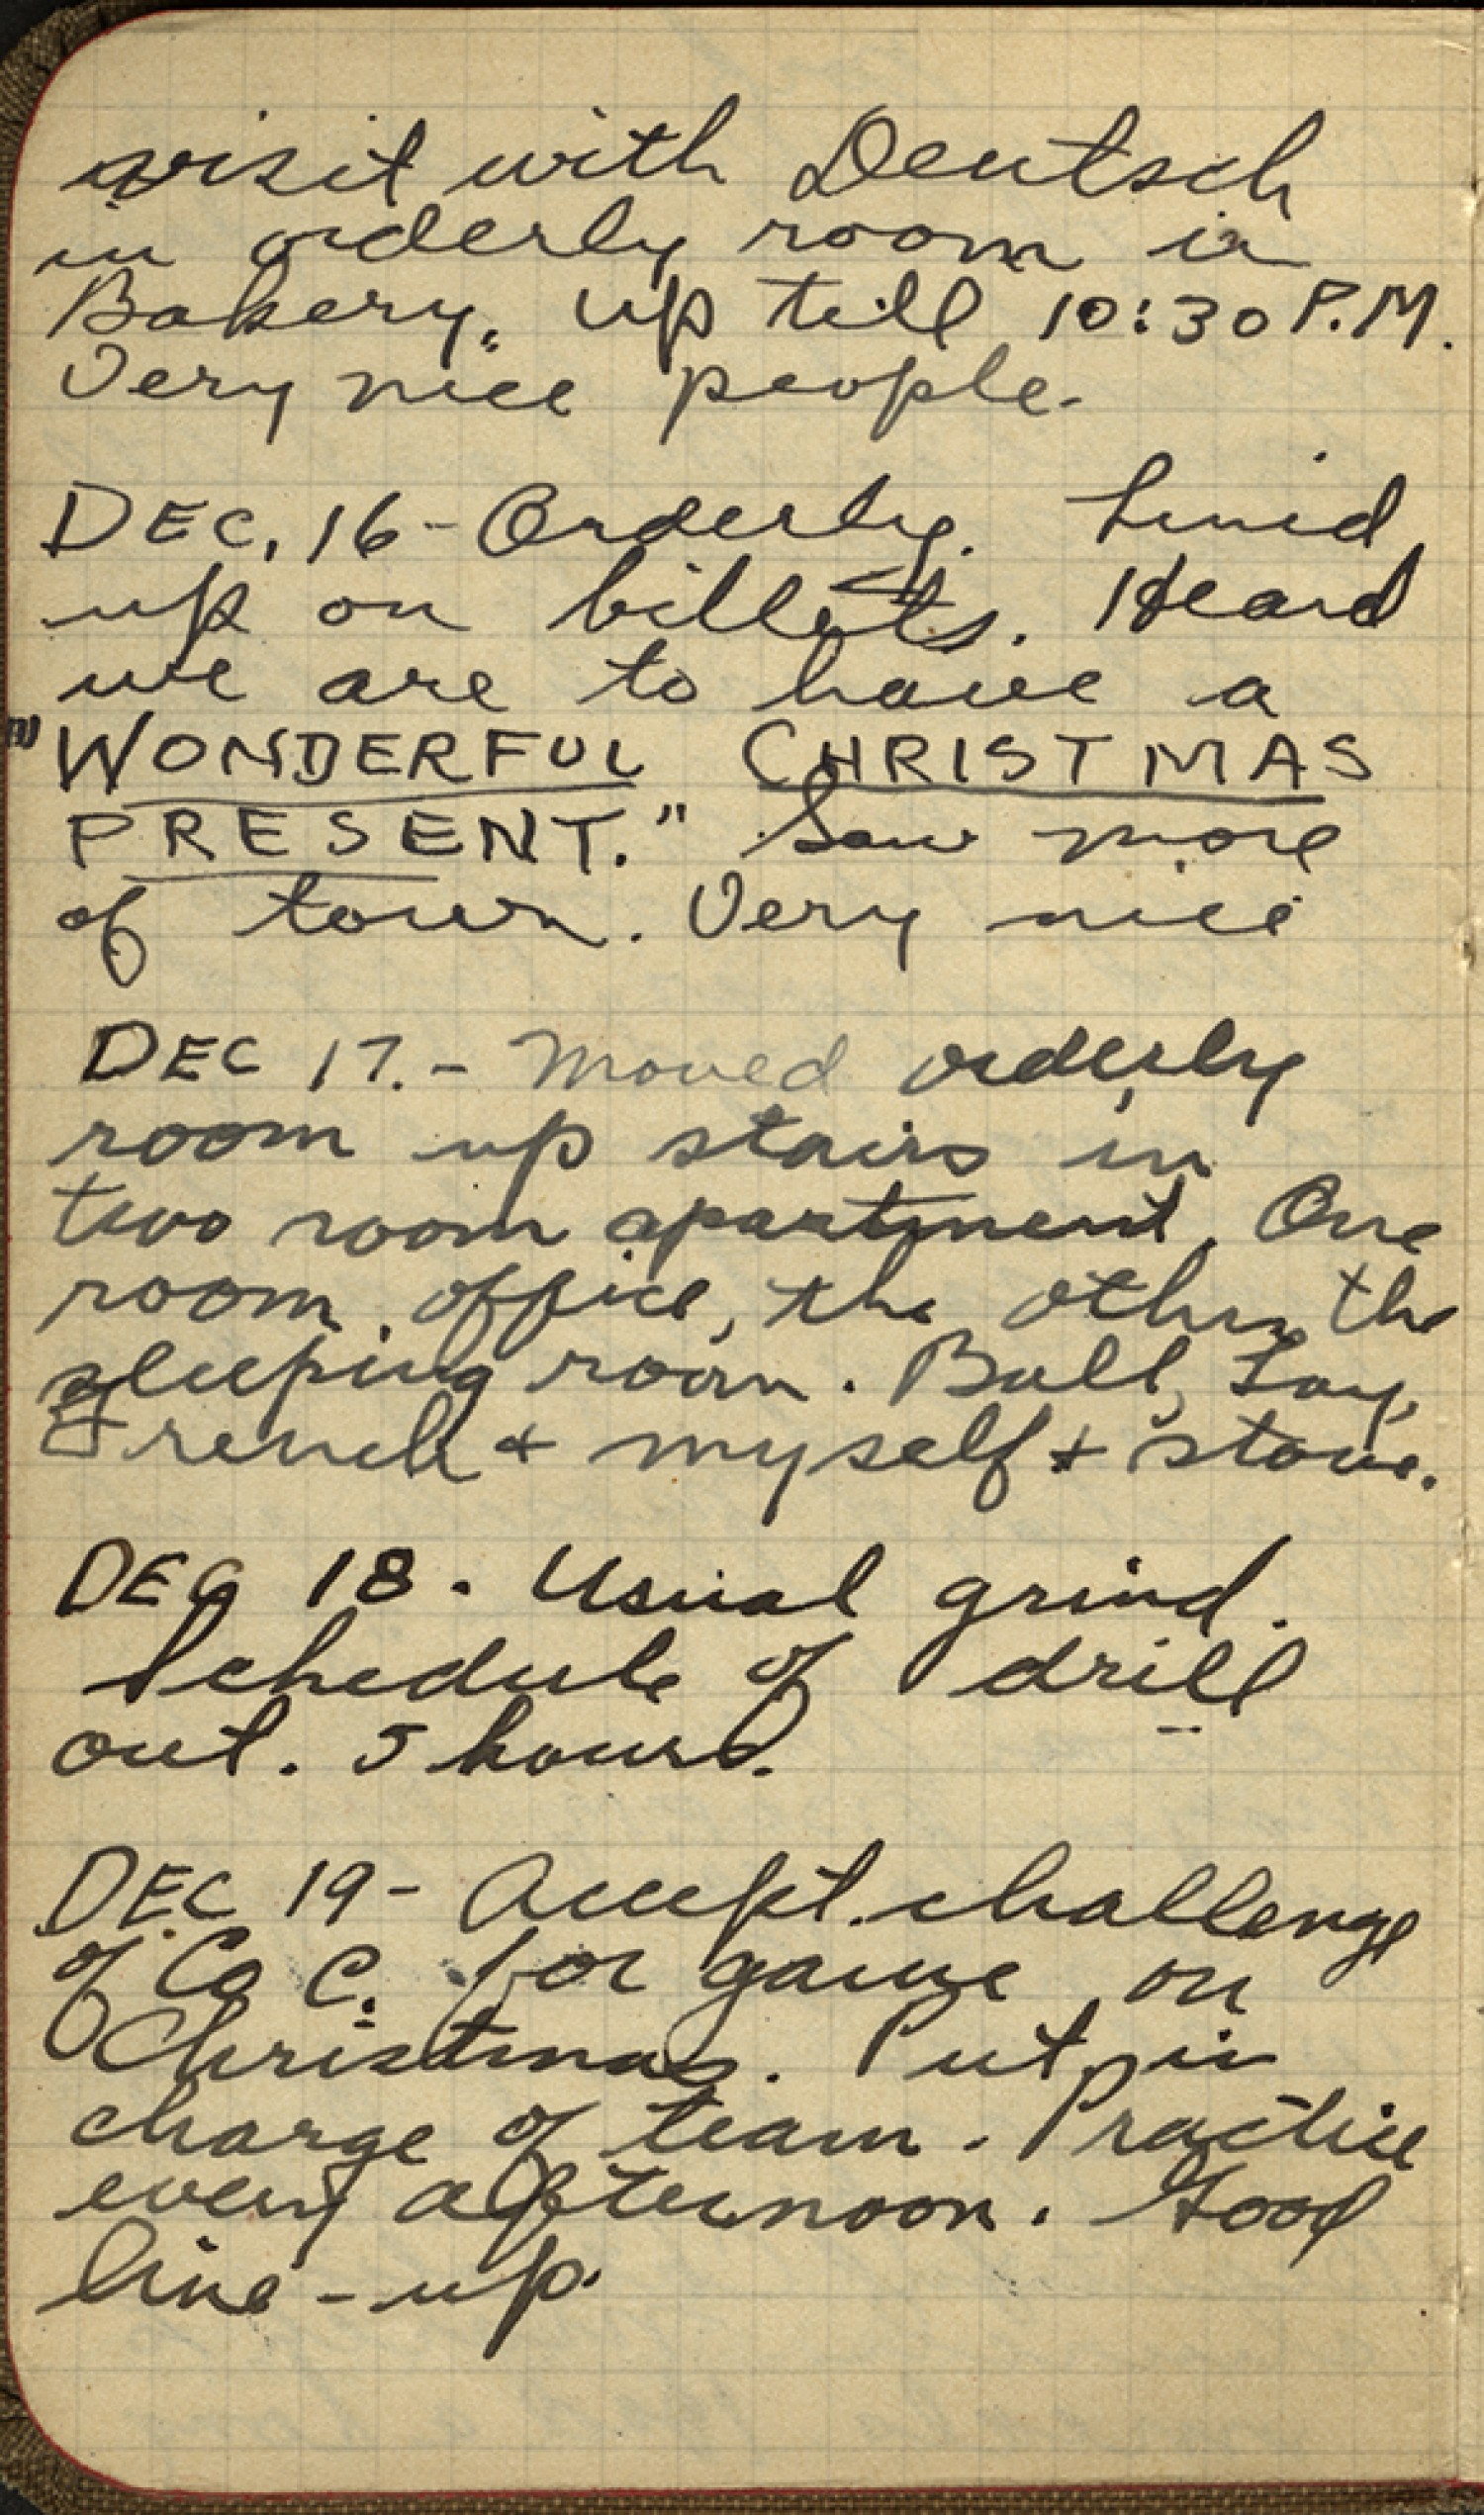 visit with Deutsch
in orderly room in
Bakery. up till 10:30 P.M.
Very nice people.
DEC. 16 - Orderly. Lined
up on billets. Heard
we are to have a
"WONDERFUL CHRISTMAS
PRESENT." Saw more
of town. Very nice
DEC 17. - Moved orderly
room up stairs in
two room apartment. One
room office, the other the
sleeping room. Ball,
French + myself + stove.
DEC 18. Usual grind.
Schedule of drill
out. 5 hours.
DEC 19 - Accept challenge
of Co C. for game on
Christmas. Put in
charge of team. Practice
every afternoon. Good
line-up.